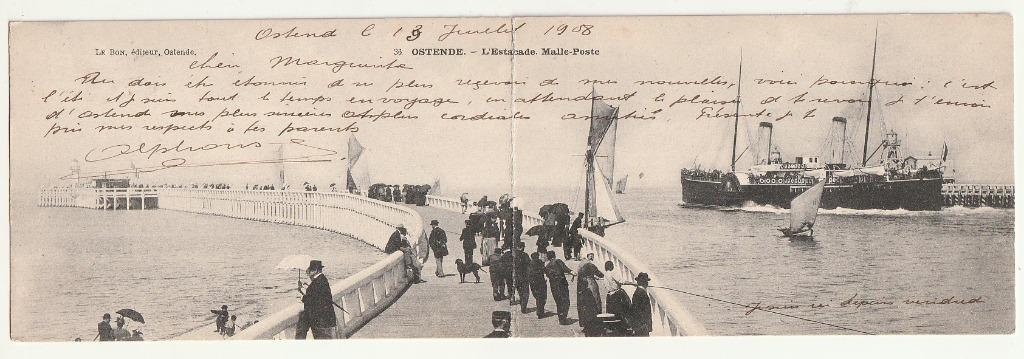 Ostend le 13 Juillet 1908
LE BON, éditeur, Ostende.
36 OSTENDE. - L'Estacade. Malle-Poste
chère Marguerite
Tu dois être étonnée de ne plus recevoir de mes nouvelles, voici pourquoi : c'est
l'été et je suis tout le temps en voyage, en attendant le plaisir de te revoir je t'envoie
d'Ostend mes plus sincères et plus cordiales amitiés. Présente je te
prie mes respects à tes parents
Alphonse
depuis vendredi